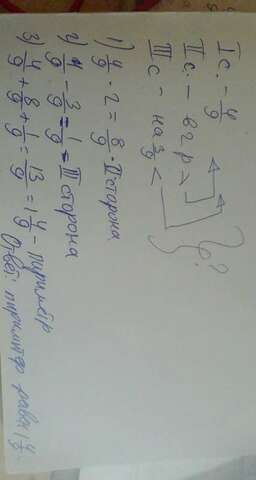 I с. - 4/9
II с. - в 2 р >
III с - на 3/9 <
P?
1) 4/9 · 2 = 8/9 - II сторона.
2) 4/9 - 3/9 = 1/9 - III сторона
3) 4/9 + 8/9 + 1/9 = 13/9 = 1 4/9 - периметр
Ответ: периметр равен 1 4/9.